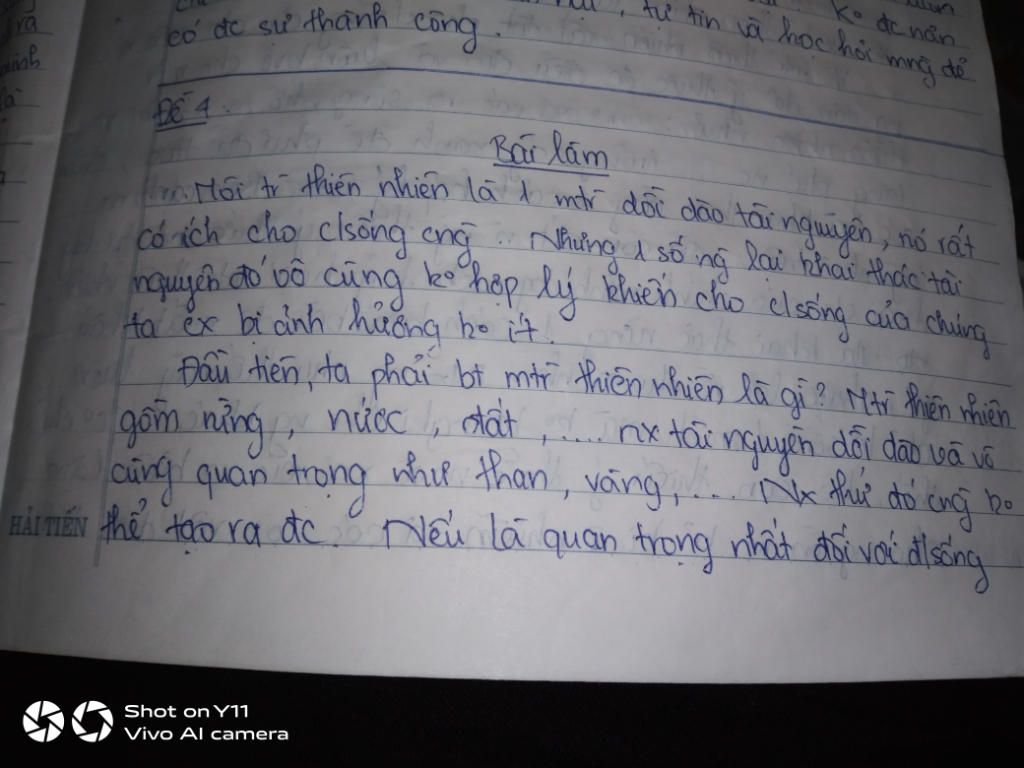 ra
tự tin và học hỏi mng để
ko đc nản
có đc sự thành công.
Đề 4.
Bài làm
Môi tr̄ thiên nhiên là 1 mtr̄ dồi dào tài nguyên, nó rất
có ích cho c/sống cng̃. Nhưng 1 số ng̃ lại khai thác tài
nguyên đó vô cùng ko hợp lý khiến cho c/sống của chúng
ta ex bị ảnh hưởng ko ít.
Đầu tiên, ta phải bt mtr̄ thiên nhiên là gì? Mtr̄ thiên nhiên
gồm rừng, nước, đất, .... nx tài nguyên dồi dào và vô
cùng quan trọng như than, vàng, ... Nx thứ đó cng̃ ko
HẢI TIẾN thể tạo ra đc. Nếu là quan trọng nhất đối với đ/sống
Shot on Y11
Vivo AI camera